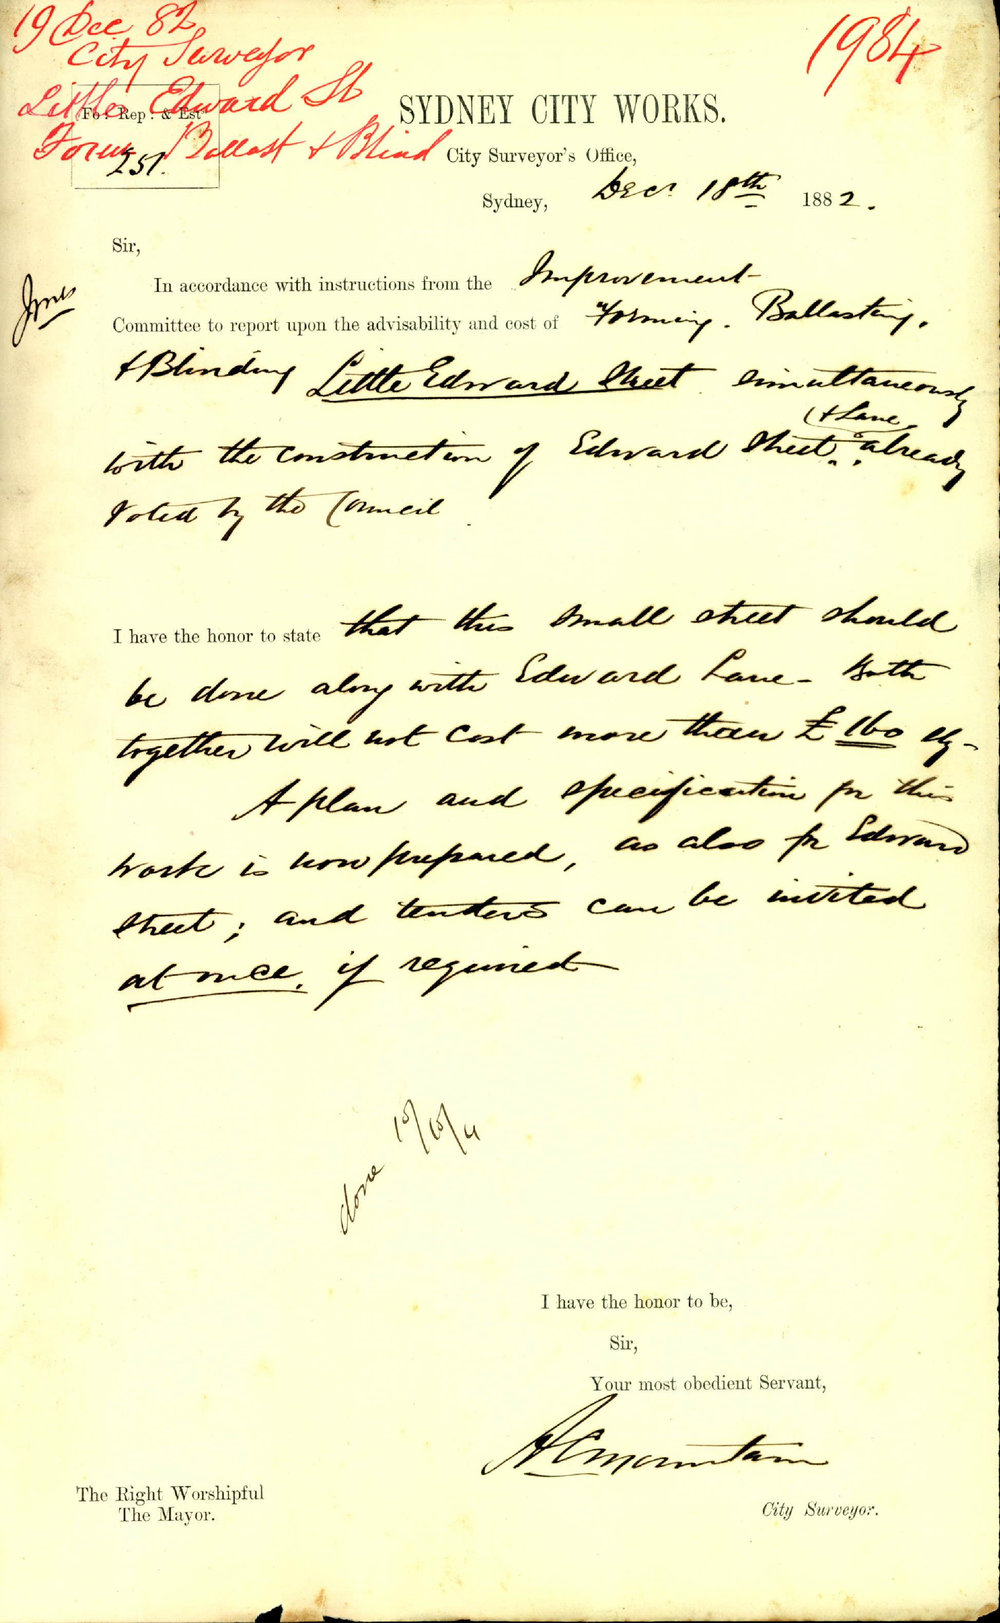 19 Dec 82
City Surveyor
Little Edward St
Form Ballast & Blind
1984
Fo: Rep: & Est
251.
SYDNEY CITY WORKS.
City Surveyor's Office,
Sydney, Decr 18th 1882.
Sir,
In accordance with instructions from the Improvement
Committee to report upon the advisability and cost of "Forming. Ballasting.
& Blinding Little Edward Street simultaneously
(& Lane
with the construction of Edward Street." already
voted by the Council.
I have the honor to state that this small street should
be done along with Edward Lane - Both
together will not cost more than £160
A plan and specification for this
work is now prepared, as also for Edward
Street; and tenders can be invited
at once, if required
done
I have the honor to be,
Sir,
Your most obedient Servant,
A C Mountain
City Surveyor.
The Right Worshipful
The Mayor.